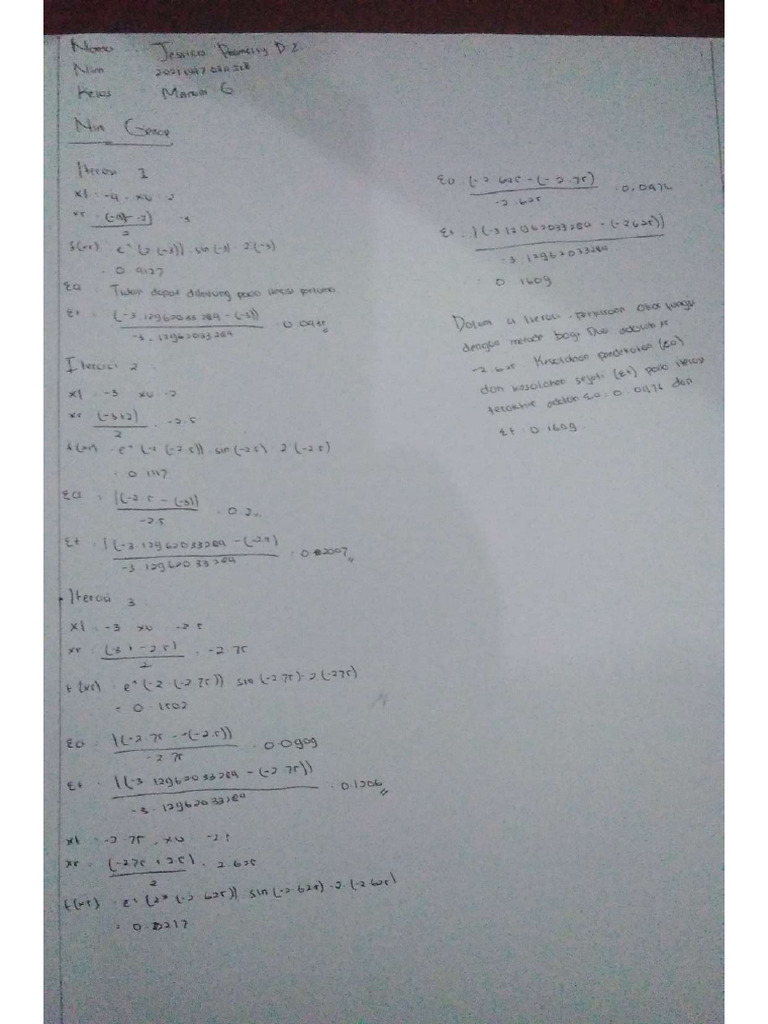 Nama : Jessica D.Z
Nim
Kelas : Manum G
Nim Genap
Iterasi 1
xl = -4 xu = -2
xr = (-4+-2) -3
2
f(xr) e^(-2 (-3)) sin(-3) - 2(-3)
= 0.4127
εa Tidak dapat dihitung pada iterasi pertama
εt = |(-3.12962033284 - (-3))
-3.12962033284 = 0.0415
Iterasi 2
xl = -3 xu -2
xr (-3+2) = -2.5
2
f(xr) e^(-2 (-2.5)) sin(-2.5) 2(-2.5)
= 0.1117
εa = |(-2.5 - (-3))
-2.5 = 0.2
εt = |(-3.12962033284 - (-2.5)
-3.12962033284 = 0.2007
Iterasi 3
xl = -3 xu = -2.5
xr = (-3 + -2.5) = -2.75
2
f(xr) = e^(-2 (-2.75)) sin(-2.75) - 2(-275)
= 0.1502
εa = |(-2.75 - (-2.5))
-2.75 = 0.0909
εt = |(-3.12962033284 - (-2.75))
-3.12962033284 = 0.1206
xl = -2.75, xu = -2.5
xr = (-275 + 2.5) = 2.625
2
f(xr) = e^(2* (-2.625)) sin(-2.625) - 2 (-2.625)
= 0.0217
εa (-2.625 - (-2.75)) = 0.0476
-2.625
εt = |(-3.12962033284 - (-2625))
-3.12962033284
= 0.1609
Dalam 4 iterasi, perkiraan akar fungsi
dengan metode bagi Dua adalah xr
-2.625 Kesalahan pendekatan (εa)
dan kesalahan sejati (εt) pada iterasi
terakhir adalah εa = 0.0476 dan
εt = 0.1609.